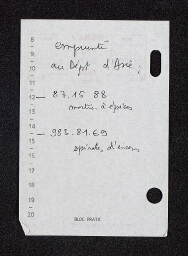 8
emprunté
9
au Dépt. d'Asie
10
11
12 — 87.15 88
mortier à épices
13
14
15 — 983.81.69
spirales d'encens
16
17
18
19
20
BLOC PRATIC